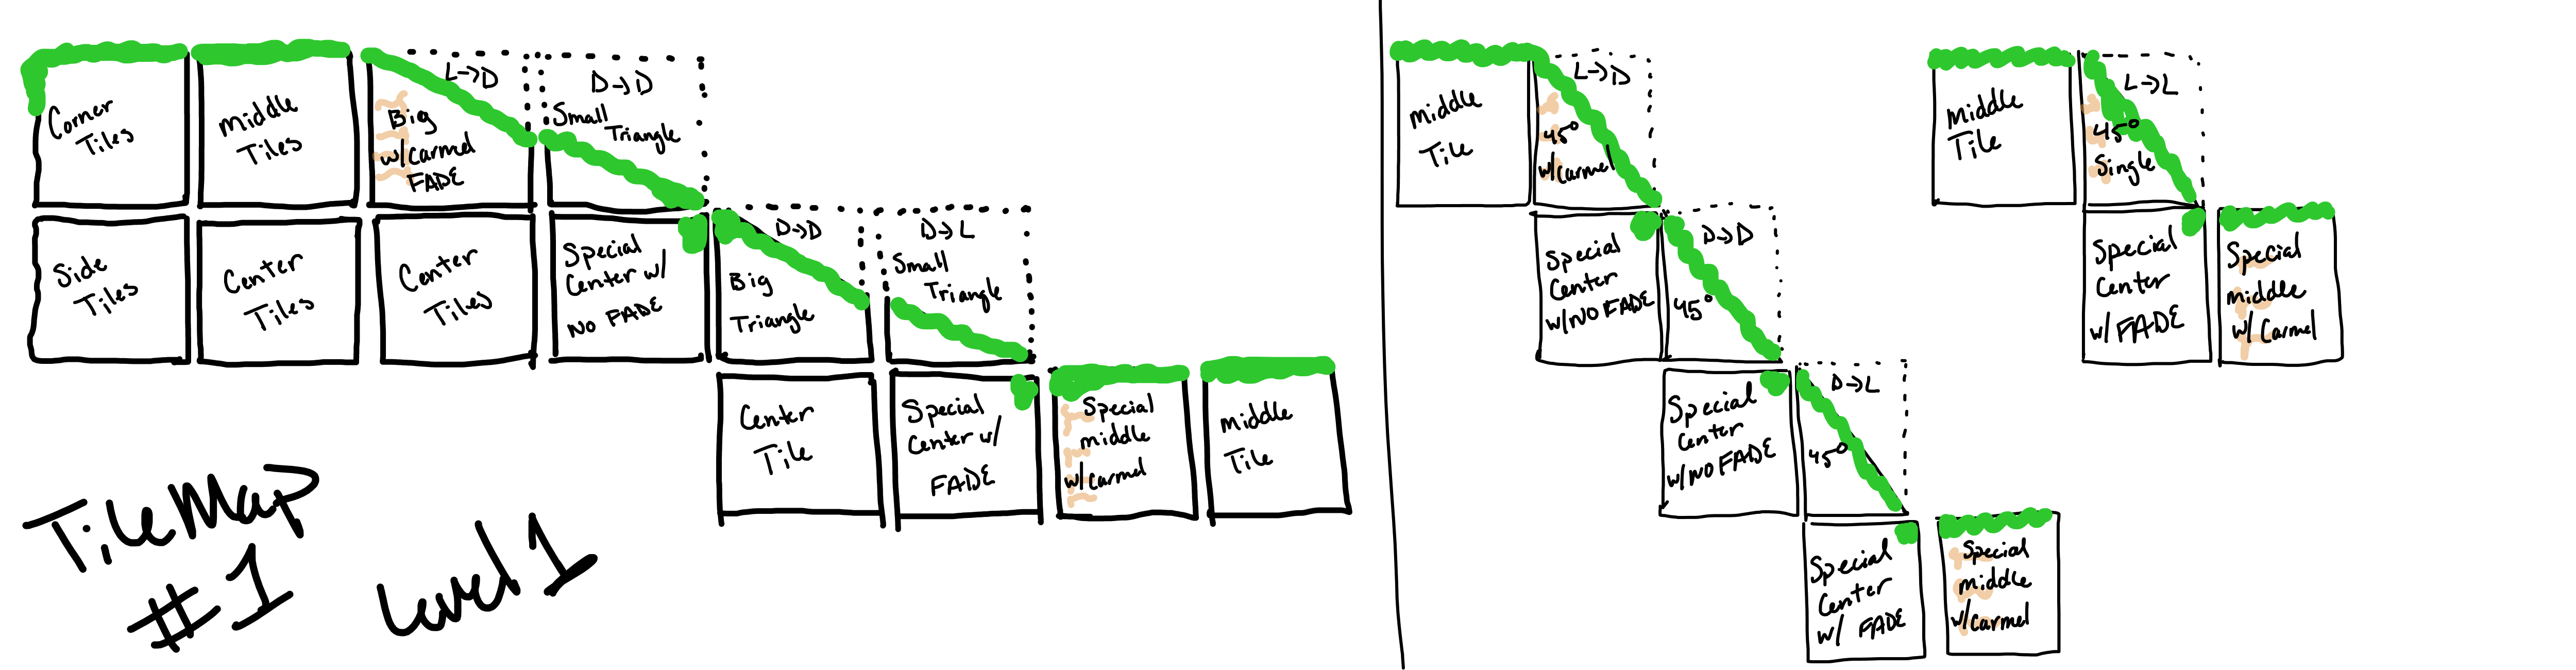 Corner
Tiles
Middle
Tiles
L→D
Big
w/Carmel
FADE
D→D
Small
Triangle
Side
Tiles
Center
Tiles
Center
Tiles
Special
Center w/
NO FADE
D→D
Big
Triangle
D→L
Small
Triangle
Center
Tile
Special
Center w/
FADE
Special
middle
w/Carmel
Middle
Tile
TileMap
#1
Level 1
Middle
Tile
L→D
45°
w/Carmel
Special
Center
w/NO FADE
D→D
45°
Special
Center
w/NO FADE
D→L
45°
Special
Center
w/ FADE
Special
middle
w/Carmel
Middle
Tile
L→L
45°
Single
Special
Center
w/ FADE
Special
middle
w/ Carmel